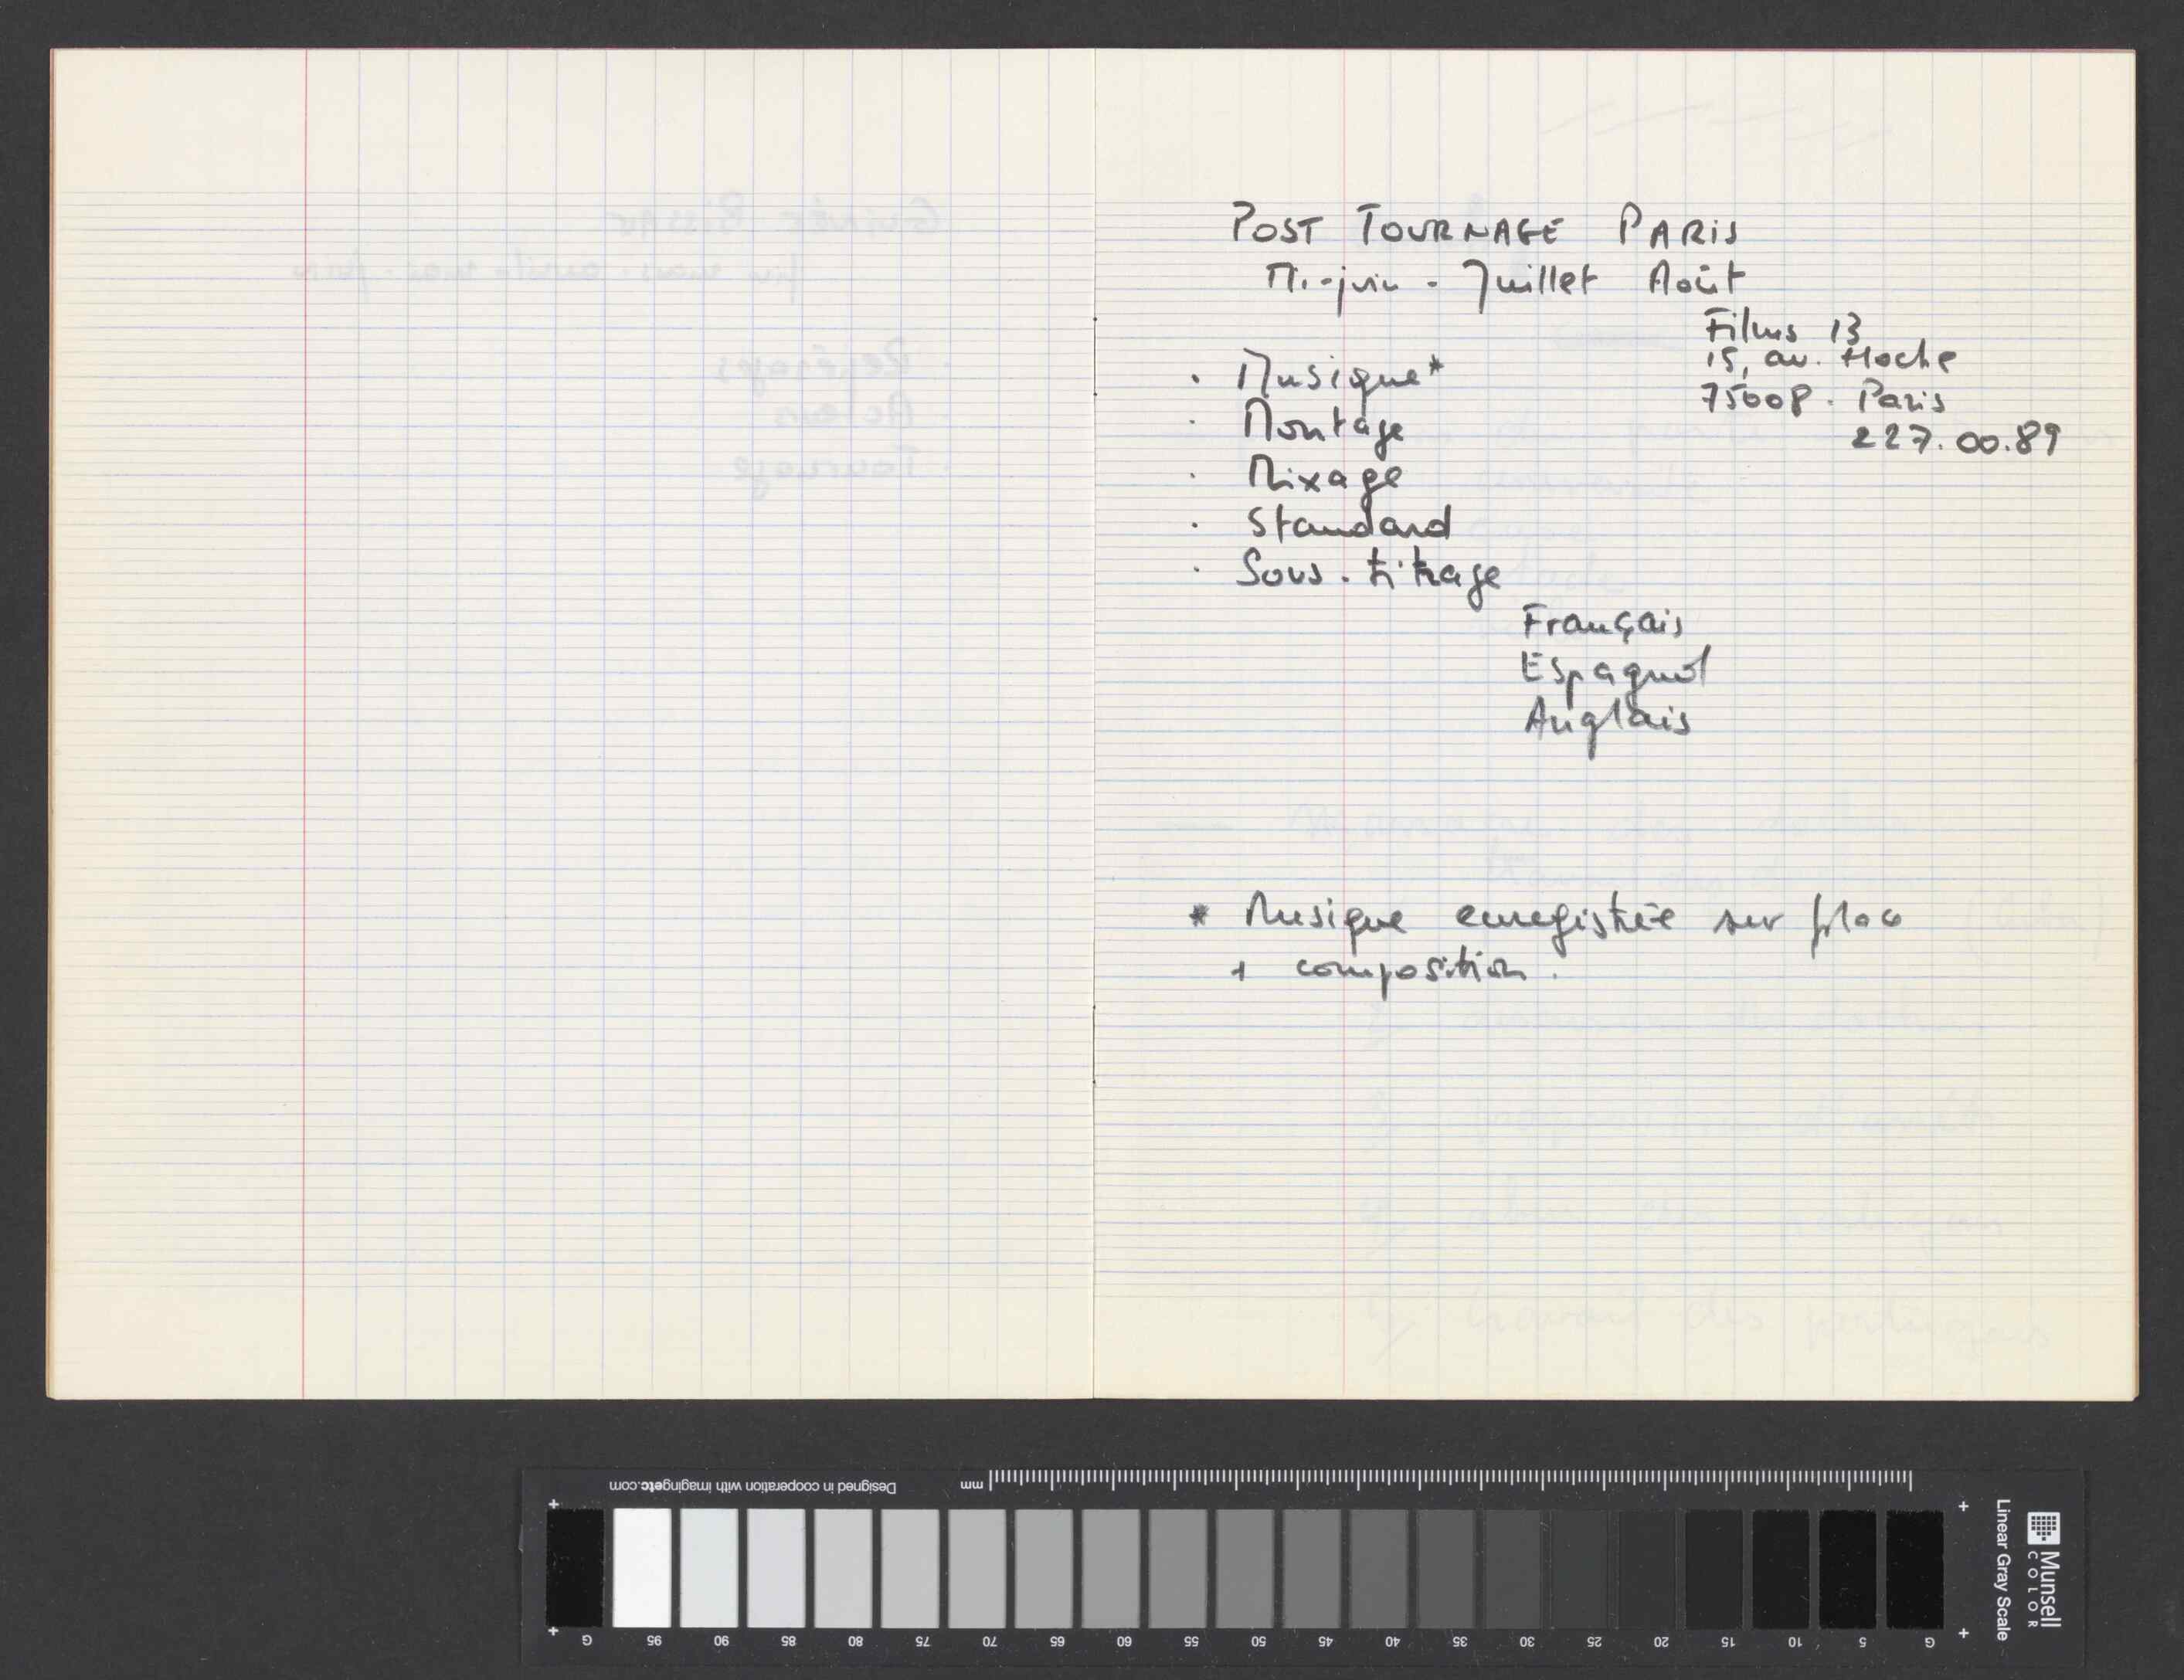 POST TOURNAGE PARIS
Mi-juin - Juillet Août
Films 13
15, av. Hoche
75008. Paris
227.00.89
. Musique*
. Montage
. Mixage
. Standard
. Sous-titrage
Français
Espagnol
Anglais
* Musique enregistrée sur place
+ composition.
Guinée Bissao
Repérages
Acteurs
Tournage
Designed in cooperation with imagingetc.com
mm
G 95 90 85 80 75 70 65 60 55 50 45 40 35 30 25 20 15 10 5 G
Linear Gray Scale
Munsell
COLOR